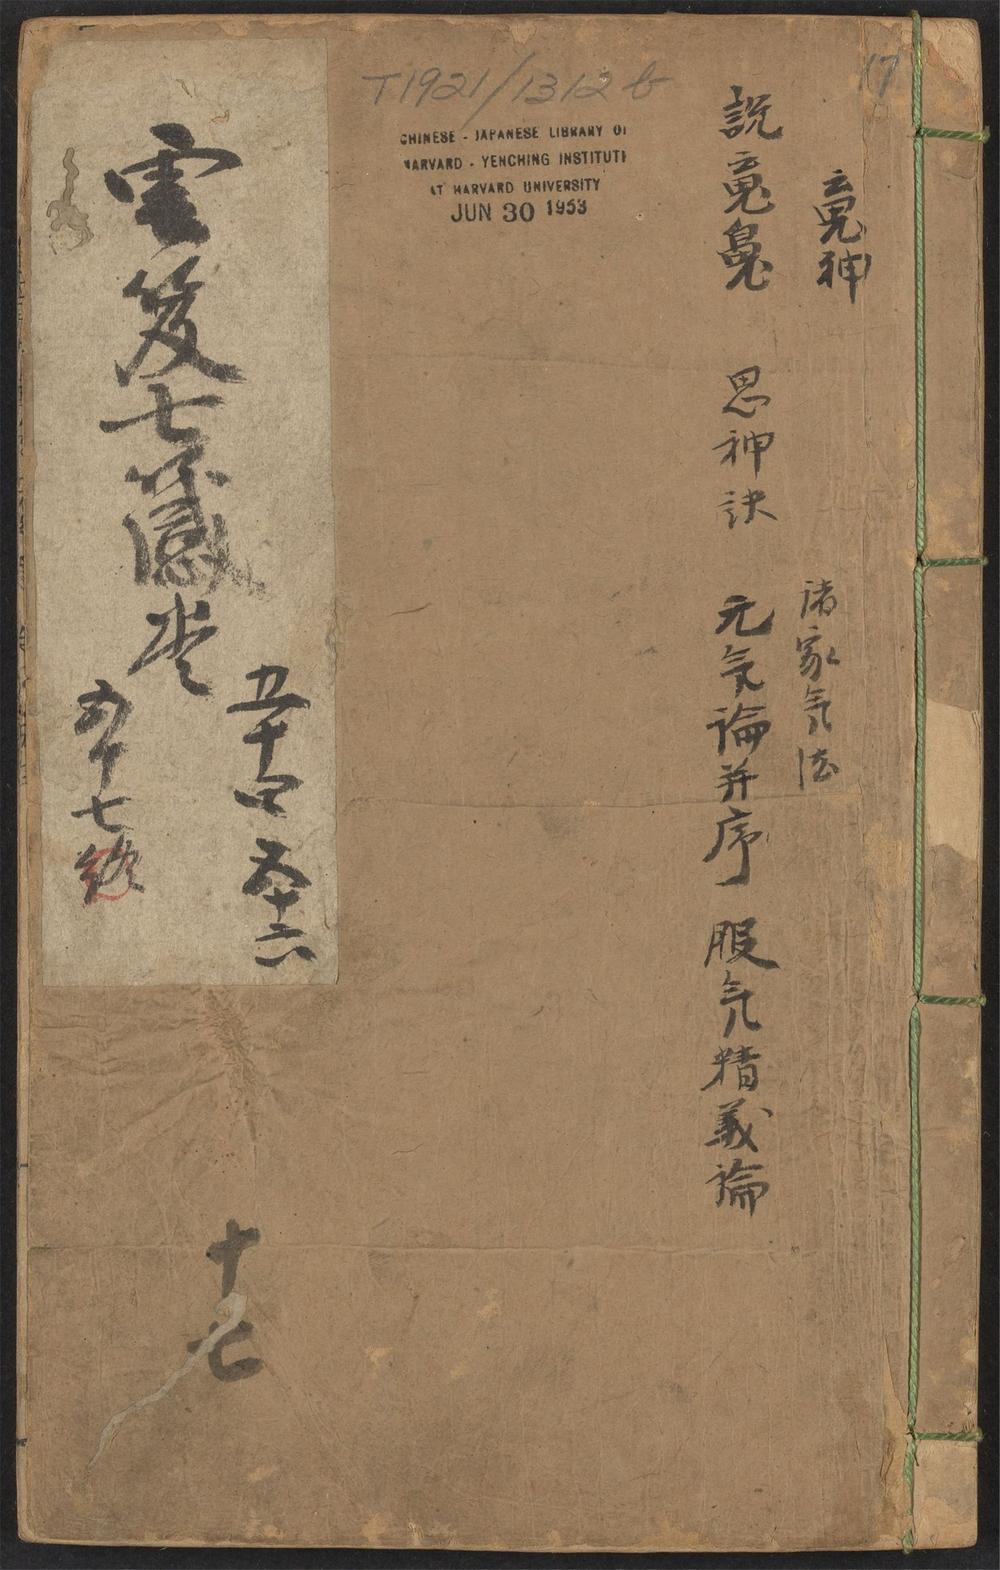 17
T1921/1312b
CHINESE - JAPANESE LIBRARY OF
HARVARD - YENCHING INSTITUTE
AT HARVARD UNIVERSITY
JUN 30 1953
魂神
諸家气法
說魂魄 思神訣 元气論并序 服气精義論
雲笈七籤卷
五十四 五十六
五十七終
十七